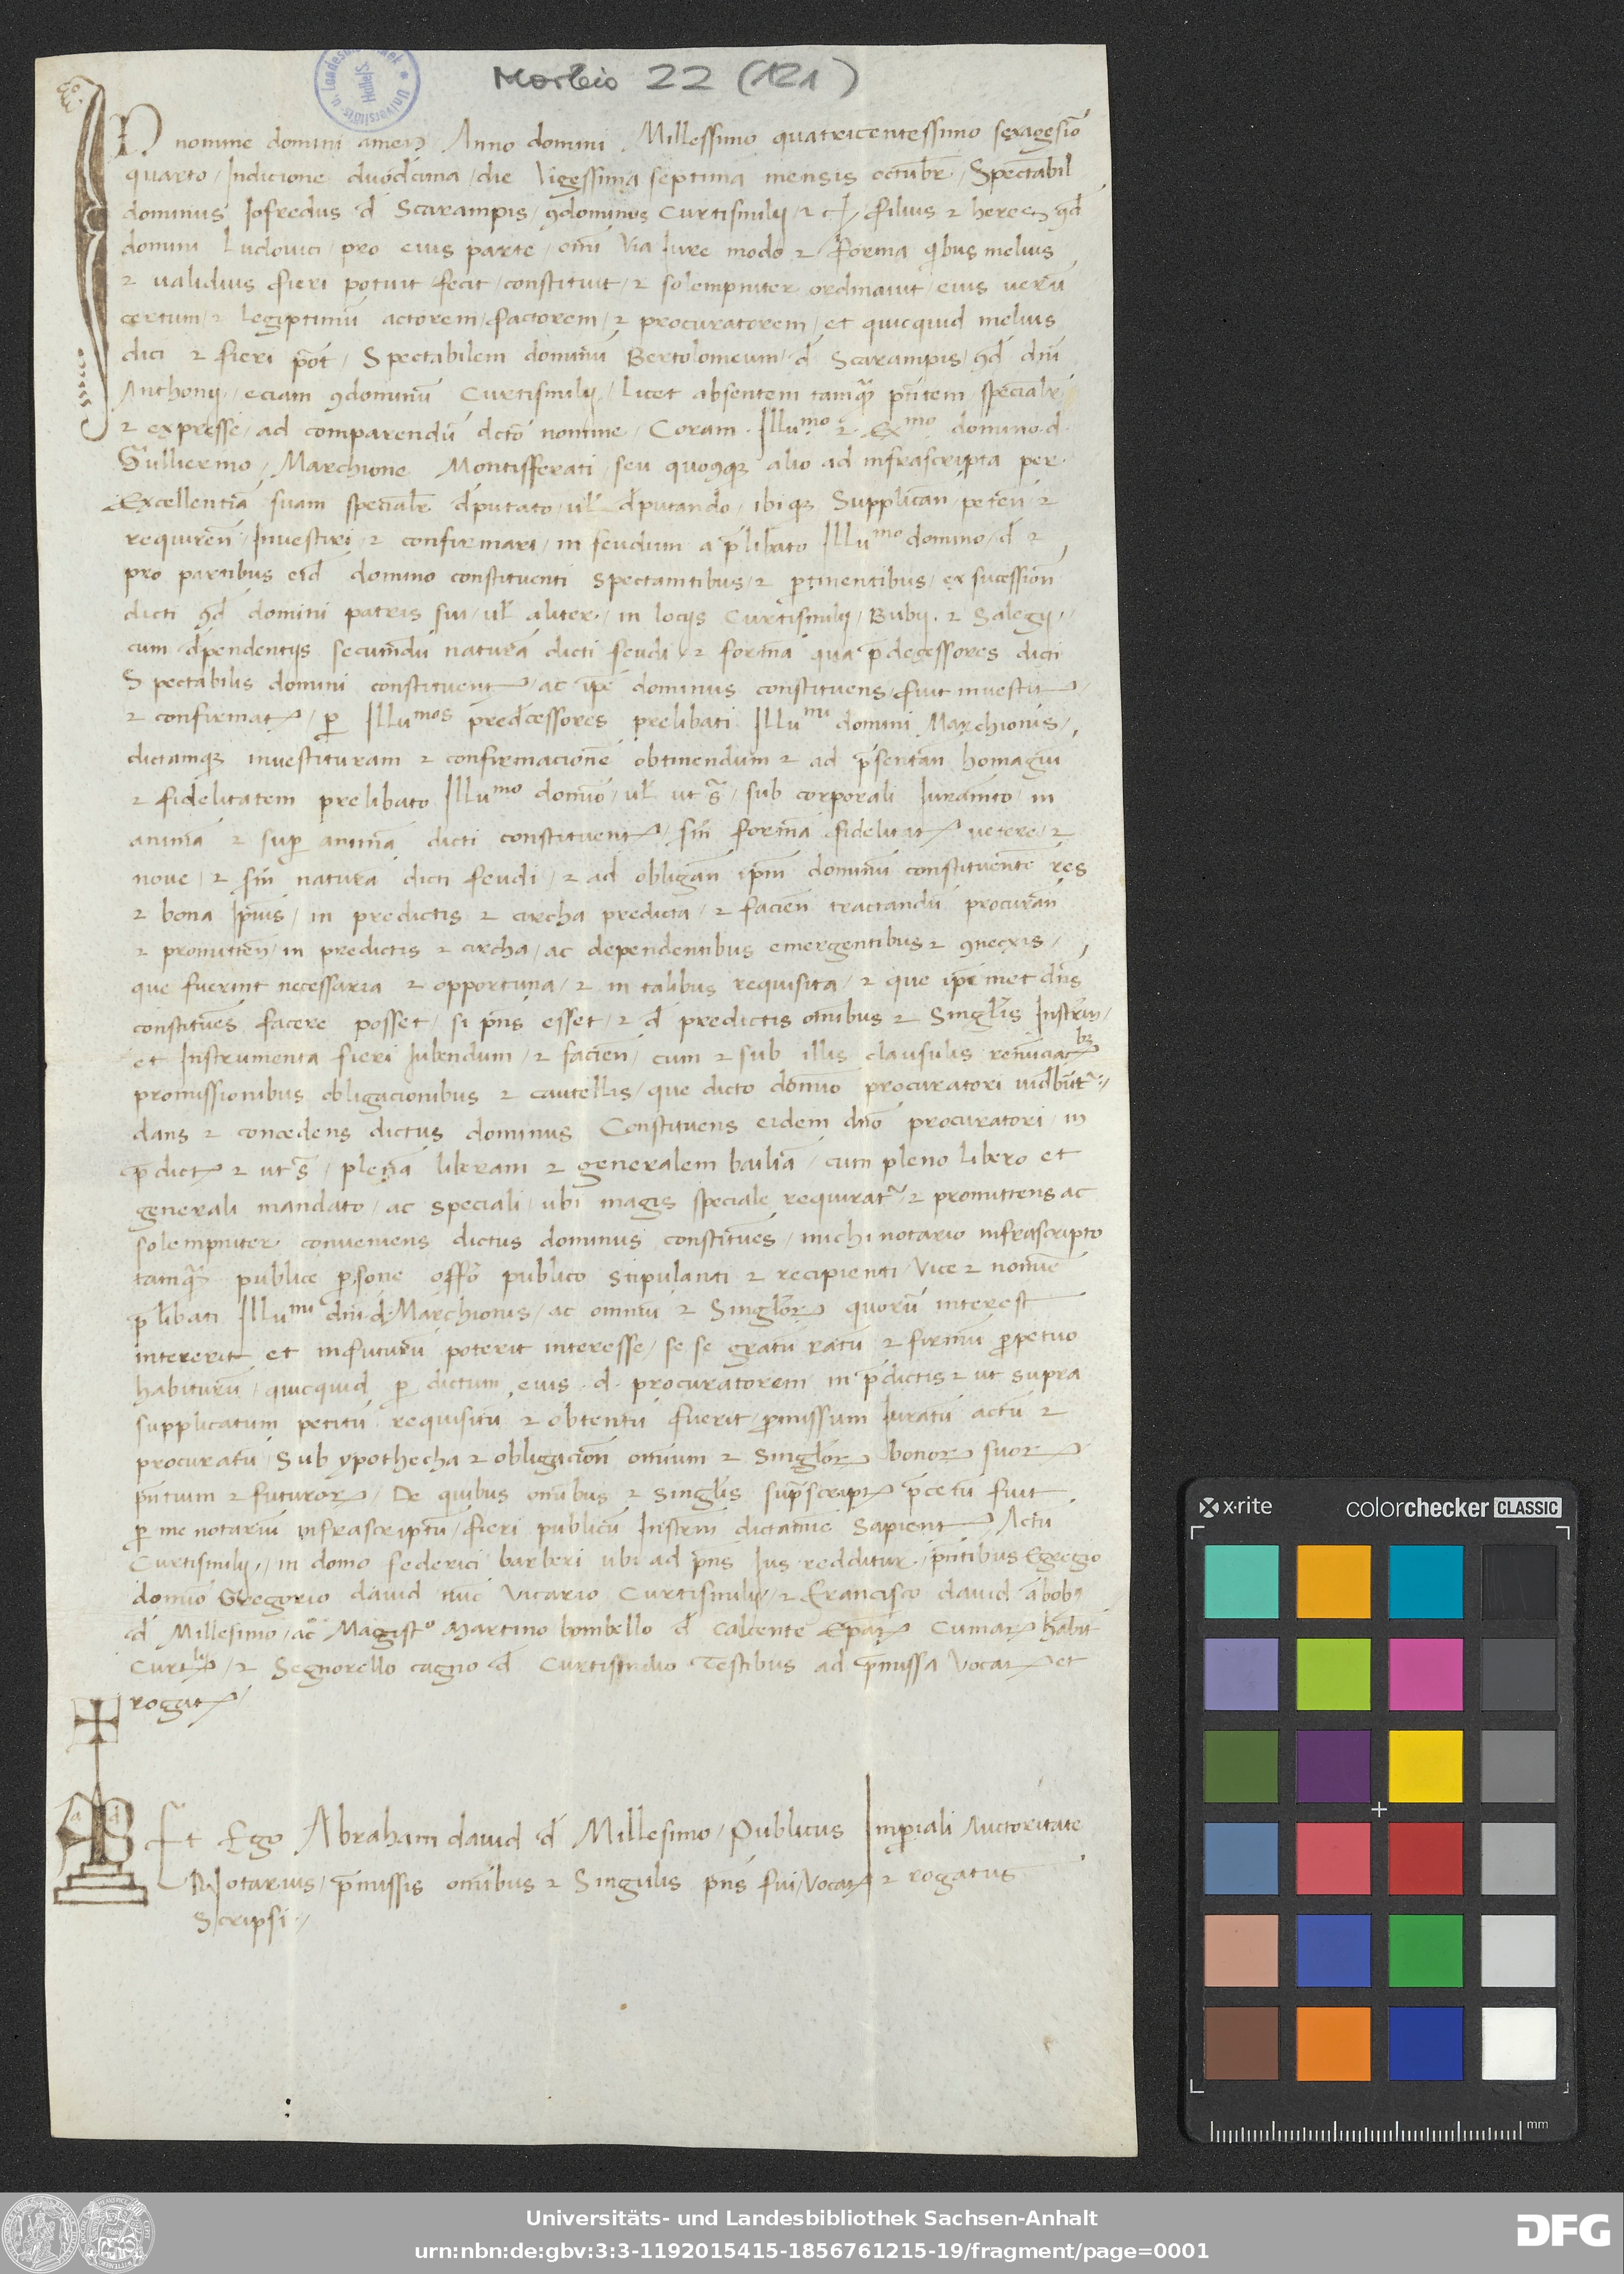 Morbio 22 (121)
IN nomine domini amen Anno domini Millessimo quatricentessimo sexagesio
quarto / Indicione duodecima / die Vigessima septima mensis octubr / Spectabil
dominus Iofredus d Scarampis / 9dominus Curtismilij / filius et heres 9d
domini Ludovici / pro eius parte / omi via Iure modo et forma qibus melius
et validius fieri potuit fecit / constituit / et solempniter ordinavit / eius veru
certum / et Legiptimu actorem / factorem / et procuratorem / et quicquid melius
dici et fieri pot / Spectabilem dominu Bertolomeum / d Scarampis / 9d dni
Anthonij / eciam 9dominu Curtismilij / licet absentem tamq pntem specialr
et expresse / ad comparendu dcto nomine / Coram Illumo et Exmo domino d
Gullermo / Marchione Montisferati / seu quocq alio ad infrascripta per
Excellentia suam specialr dputato / ul dputando / ibiq Supplican / peten et
requiren / Investiri / et confirmari / in feudum a plibato Illumo domino / d et
pro partibus eid domino constituenti spectantibus / et ptinentibus / ex sucession
dicti 9d domini patris sui / ul aliter / in locijs Curtismilij / Bubij et Salegij /
cum dpendentijs secundu natura dicti feudi / et forma qua pdecessores dicti
Spectabilis domini constituent / ac ipe dominus constituens / fuit investit /
et confirmat / p Illumos predecessores prelibati Illumi domini Marchionis /
dictamq investituram et confirmacione obtinendum et ad psentan homagiu
et fidelitatem prelibato Illumo domio / ul ut s / sub corporali Iuramto / in
anima et sup anima dicti constituent / sm forma fidelitat vetere / et
nove / et sm natura dicti feudi / et ad obligan ipm dominu constituente res
et bona ipius / in predictis et circha predicta / et facien tractandu procuran
et promitten / in predictis et circha / ac dependentibus emergentibus et 9nexis /
que fuerint necessaria et opportuna / et in talibus requisita / et que ipemet dns
constitues facere posset / si pns esset / et d predictis omibus et Singlis Instrm /
et Instrumenta fieri Iubendum / et facien / cum et sub illis clausulis renuciacbs
promissionibus obligacionibus et cautellis / que dicto domio procuratori vidbutr /
dans et concedens dictus dominus Constituens eidem dno procuratori / in
pdict et ut s / plena liberam et generalem bailia / cum pleno libero et
generali mandato / ac speciali / ubi magis speciale requirat / et promittens ac
solempniter conveniens dictus dominus constitues / michi notario infrascripto
tamq publice psone offo publico stipulanti et recipienti / Vice et nomie
plibati Illumi dni d Marchionis / ac omniu et Singlor quoru interest
intererit et infuturu poterit interesse / se se gratu ratu et firmu ppetuo
habituru / quicquid p dictum eius d procuratorem in pdictis et ut supra
supplicatum petitu requisitu et obtentu fuerit / pmissum Iuratu actu et
procuratu / Sub ypothecha et obligacion omium et Singlor bonor suor
pntium et futuror / De quibus omibus et singlis supscript pcetu fuit
p me notariu infrascriptu / fieri publicu Instrm dictamie Sapient / Actu
Curtismilij / in domo federici barberi ubi ad pns Ius redditur / pntibus Egregio
domio Gregorio david nuc Vicario Curtismilij / et Francisco david abob
d Millesimo / ac Magisto Martino bombello d Calcente Epat Cumar habit
Curtlij / et Segnorello cagno d Curtismilio Testibus ad pmissa Vocat et
rogat /
Et Ego Abraham david d Millesimo / Publicus Imperiali Auctoritate
Notarius / pmissis omibus et Singulis pns fui / Vocat et rogatus
Scripsi /
x-rite
colorchecker CLASSIC
mm
Universitäts- und Landesbibliothek Sachsen-Anhalt
urn:nbn:de:gbv:3:3-1192015415-1856761215-19/fragment/page=0001
DFG